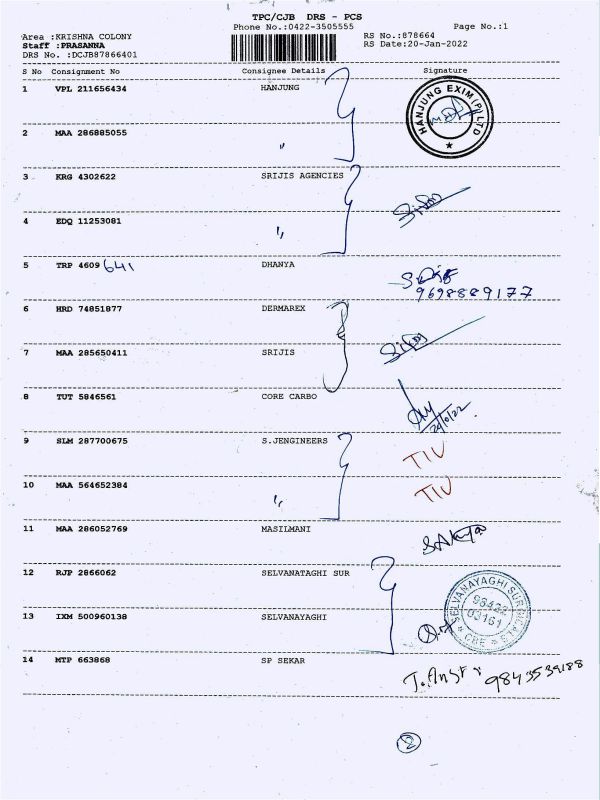 TPC/CJB DRS - PCS
Phone No.:0422-3505555 Page No.:1
Area :KRISHNA COLONY RS No.:878664
Staff :PRASANNA RS Date:20-Jan-2022
DRS No. :DCJB87866401
S No Consignment No Consignee Details Signature
1 VPL 211656434 HANJUNG
HANJUNG EXIM (P) LTD
2 MAA 286885055 "
3 KRG 4302622 SRIJIS AGENCIES
4 EDQ 11253081 "
5 TRP 4609641 DHANYA
9698889177
6 HRD 74851877 DERMAREX
7 MAA 285650411 SRIJIS
8 TUT 5846561 CORE CARBO
9 SLM 287700675 S.JENGINEERS TIU
10 MAA 564652384 " TIU
11 MAA 286052769 MASILMANI
12 RJP 2866062 SELVANATAGHI SUR
SELVANAYAGHI SURGICALS
98422
03161
CBE
13 IXM 500960138 SELVANAYAGHI
14 MTP 663868 SP SEKAR
9843539188
2